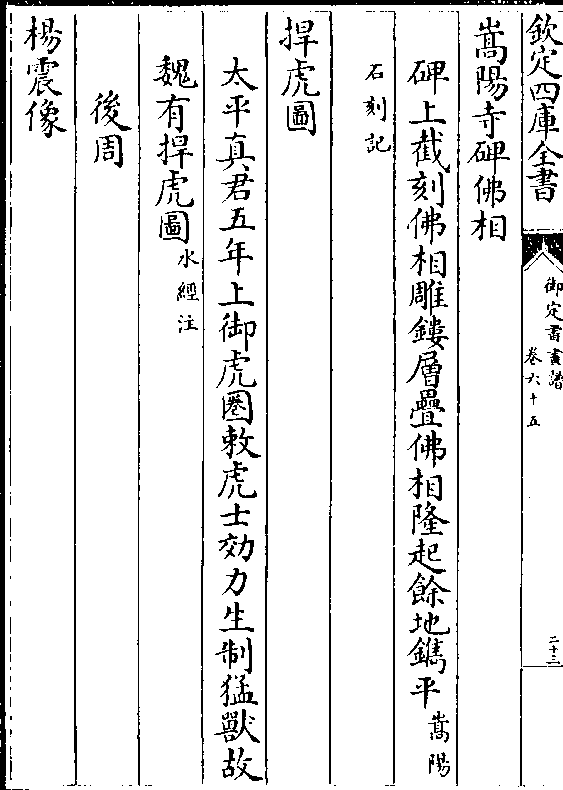 欽定四庫全書
御定書畫譜
卷六十五
二十三
嵩陽寺碑佛相
碑上截刻佛相雕鏤層疊佛相隆起餘地鐫平嵩陽
石刻記
捍虎圖
太平真君五年上御虎圈敕虎士効力生制猛獸故
魏有捍虎圖水經注
後周
楊震像